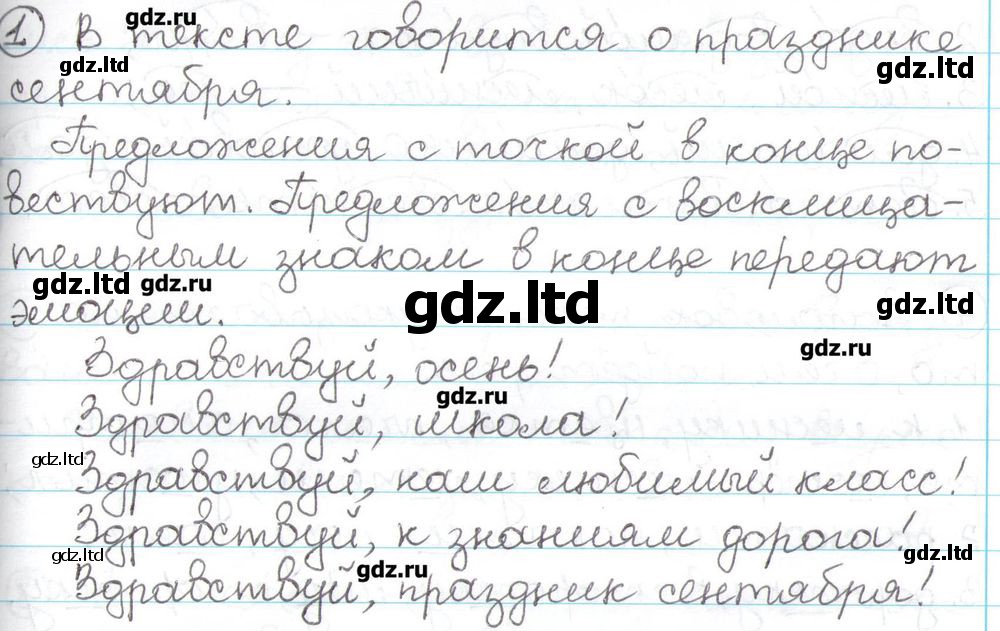 gdz.ru
1 В тексте говорится о празднике
gdz.ltd gdz.ltd
сентября.
Предложения с точкой в конце по-
вествуют. Предложения с восклица-
тельным знаком в конце передают
gdz.ltd gdz.ru gdz.ltd gdz.ltd
эмоции.
gdz.ru
Здравствуй, осень!
gdz.ru
Здравствуй, школа!
gdz.ltd
Здравствуй, наш любимый класс!
Здравствуй, к знаниям дорога!
gdz.ltd gdz.ru gdz.ltd
Здравствуй, праздник сентября!